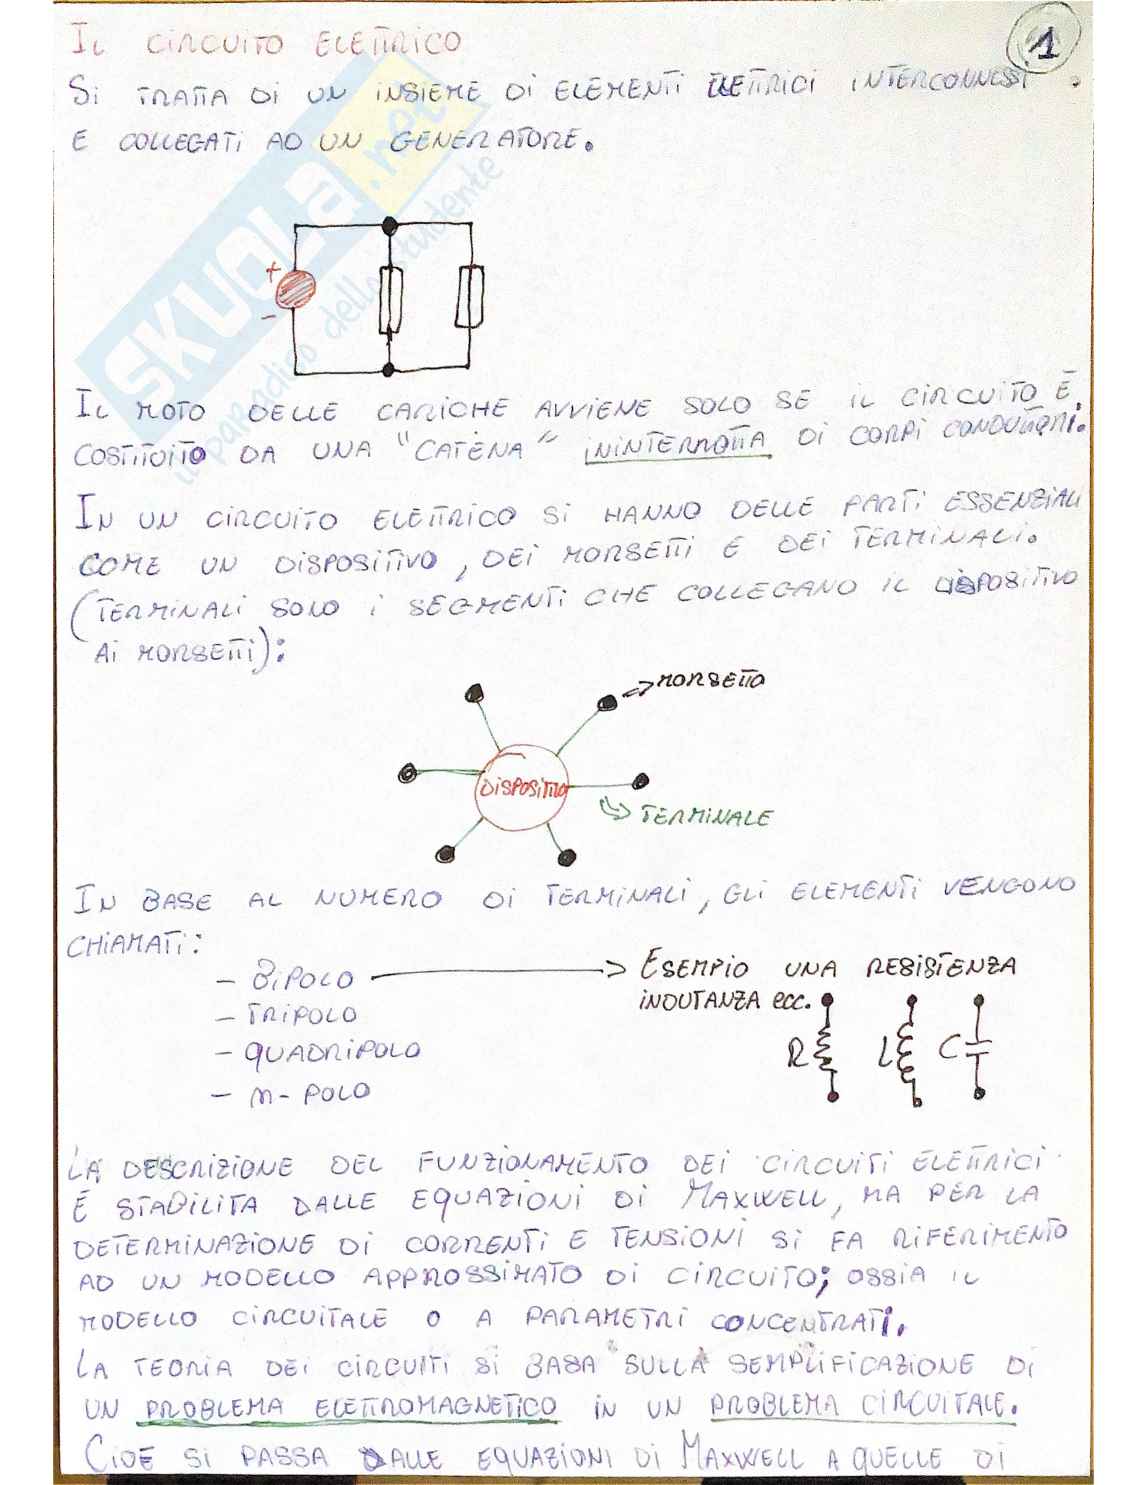 IL CIRCUITO ELETTRICO
1
SI TRATTA DI UN INSIEME DI ELEMENTI ELETTRICI INTERCONNESSI
E COLLEGATI AD UN GENERATORE.
SKUOLA.net
il paradiso dello studente
+
-
IL MOTO DELLE CARICHE AVVIENE SOLO SE IL CIRCUITO È
COSTITUITO DA UNA "CATENA" ININTERROTTA DI CORPI CONDUTTORI.
IN UN CIRCUITO ELETTRICO SI HANNO DELLE PARTI ESSENZIALI
COME UN DISPOSITIVO, DEI MORSETTI E DEI TERMINALI.
(TERMINALI SONO I SEGMENTI CHE COLLEGANO IL DISPOSITIVO
AI MORSETTI):
MORSETTO
DISPOSITIVO
TERMINALE
IN BASE AL NUMERO DI TERMINALI, GLI ELEMENTI VENGONO
CHIAMATI:
- BIPOLO → ESEMPIO UNA RESISTENZA
INDUTANZA ecc.
- TRIPOLO
- QUADRIPOLO
- n-POLO
R L C
LA DESCRIZIONE DEL FUNZIONAMENTO DEI CIRCUITI ELETTRICI
È STABILITA DALLE EQUAZIONI DI MAXWELL, MA PER LA
DETERMINAZIONE DI CORRENTI E TENSIONI SI FA RIFERIMENTO
AD UN MODELLO APPROSSIMATO DI CIRCUITO; OSSIA IL
MODELLO CIRCUITALE O A PARAMETRI CONCENTRATI.
LA TEORIA DEI CIRCUITI SI BASA SULLA SEMPLIFICAZIONE DI
UN PROBLEMA ELETTROMAGNETICO IN UN PROBLEMA CIRCUITALE.
CIOÈ SI PASSA DALLE EQUAZIONI DI MAXWELL A QUELLE DI